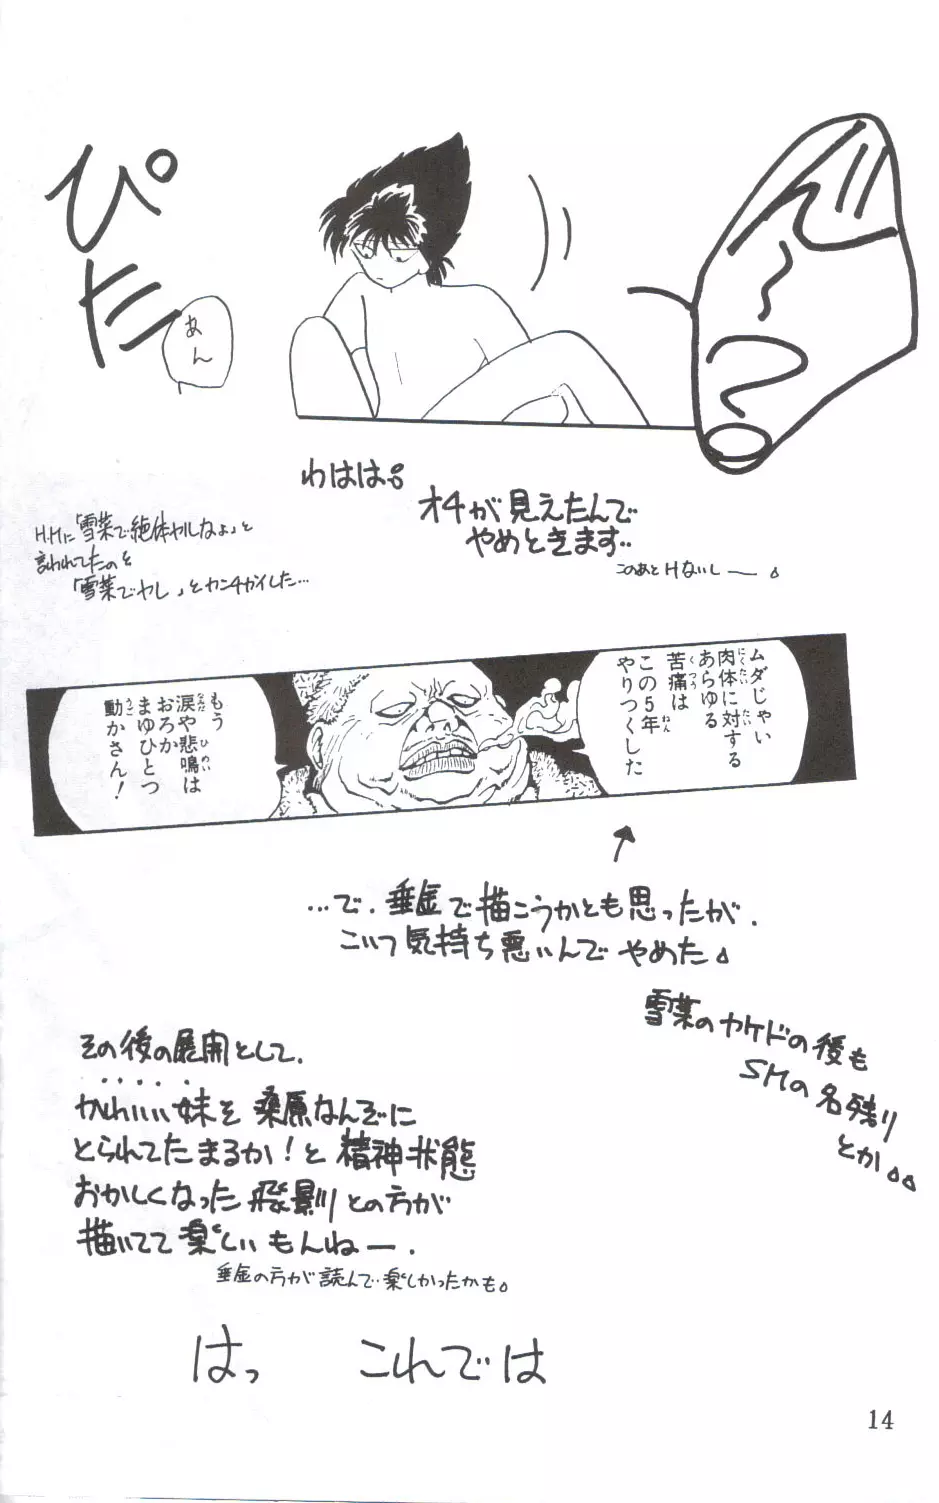 ぴた
あん
わはは。
オチが見えたんで
やめときます‥
このあとHないしー。
H.Hに「雪菜で絶体ヤルなよ」と
言われてたのを
「雪菜でヤレ」とカンチガイした…
ムダじゃい
肉体に対する
あらゆる
苦痛は
この5年
やりつくした
もう
涙や悲鳴は
おろか
まゆひとつ
動かさん！
…で、垂金で描こうかとも思ったが、
こいつ気持ち悪いんでやめた。
雪菜のヤケドの後も
SMの名残り
とか。。
その後の展開として、
かわいい妹を桑原なんぞに
とられてたまるか！と精神状態
おかしくなった飛影との方が
描いてて楽しいもんねー.
垂金の方が読んで楽しかったかも。
はっ これでは
14